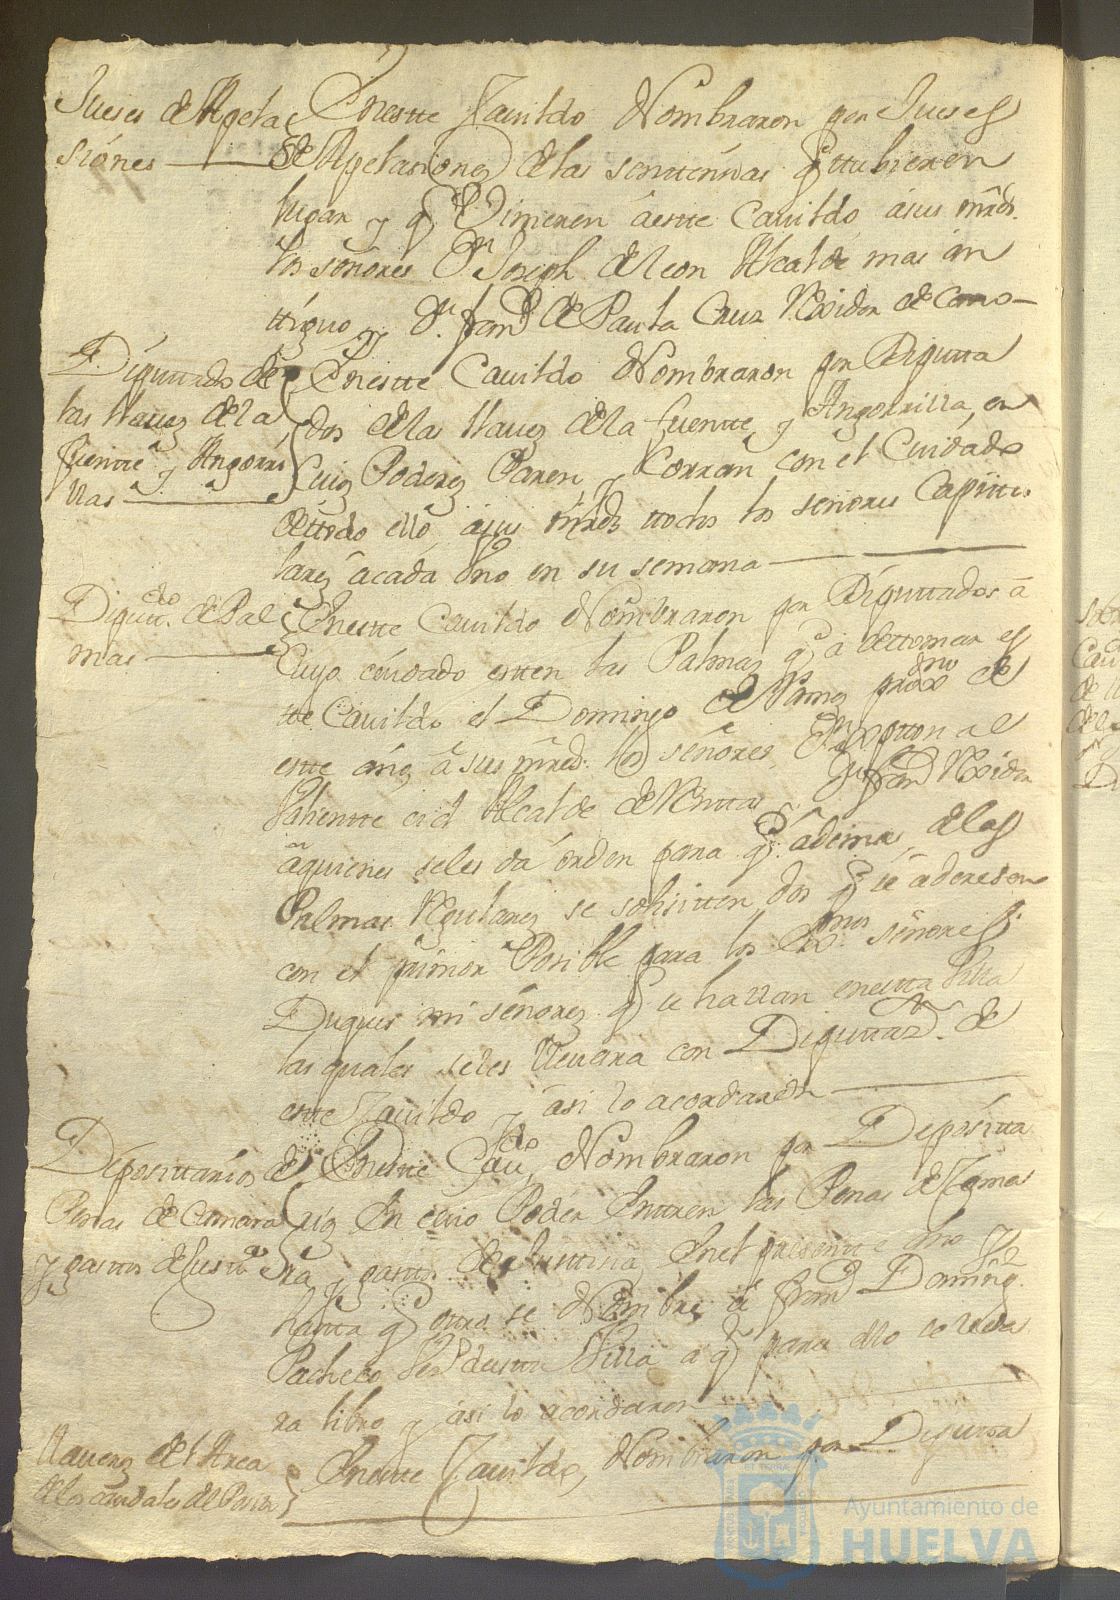 Jueses de Apela
siones
Enestte Cavildo Nombraron por Jueses
de Apelasiones de las senttensias q ttubieren
lugar y q Vinieren áestte Cavildo, ásus mrds.
los señores Dn Joseph de leon Alcalde mas an
ttiguo y Dn. franco de Paula Cruz Rexidor de Cano
Diputtados de
las llaues de la
fuentte y Angorri
llas
Enestte Cavildo Nombraron por Diputta
dos de las llaues de la fuentte y Angorrilla, en
Cuios Poderes Paren y Corran con el Cuidado
dettodo ello, ásus mrds ttodos los señores Capittu
lares ácada Uno en su semana
Diputtdos. de Pal
mas
Enestte Cavildo Nombraron por Diputtados á
Cuyo cuidado estten las Palmas q á dettomar es
tte Cavildo el Domingo de Ramos proxmo de
estte año á sus mrds. los señores
Valientte cid Alcalde de Renttas franco Rexidor
áquienes seles dá orden para q. ádemas, delas
Palmas Regulares se solisitten dos q se áderesen
con el primor Posible para los Exmos señores
Duques mi señores q se hallan enestta Villa
las quales seles lleuara con Diputtazn. de
estte Cavildo y ási lo acordaron
Deposittarios de
Penas de Camara
y gasttos de Justta
Enestte Caudo, Nombraron por Depositta
rios En cuio Poder Enttren las Penas de Cama
ra y gasttos de Justtisia, Enel presentte Año y
hastta q ottro se Nombre, á franco Doming.
Pacheco Vezo desstta Villa a q para ello se leda
ra libro y ási lo acordaron
llaues del Arca
de los caudales del Posito
Enestte Cavildo, Nombraron por Diputta
Ayuntamiento de
HUELVA